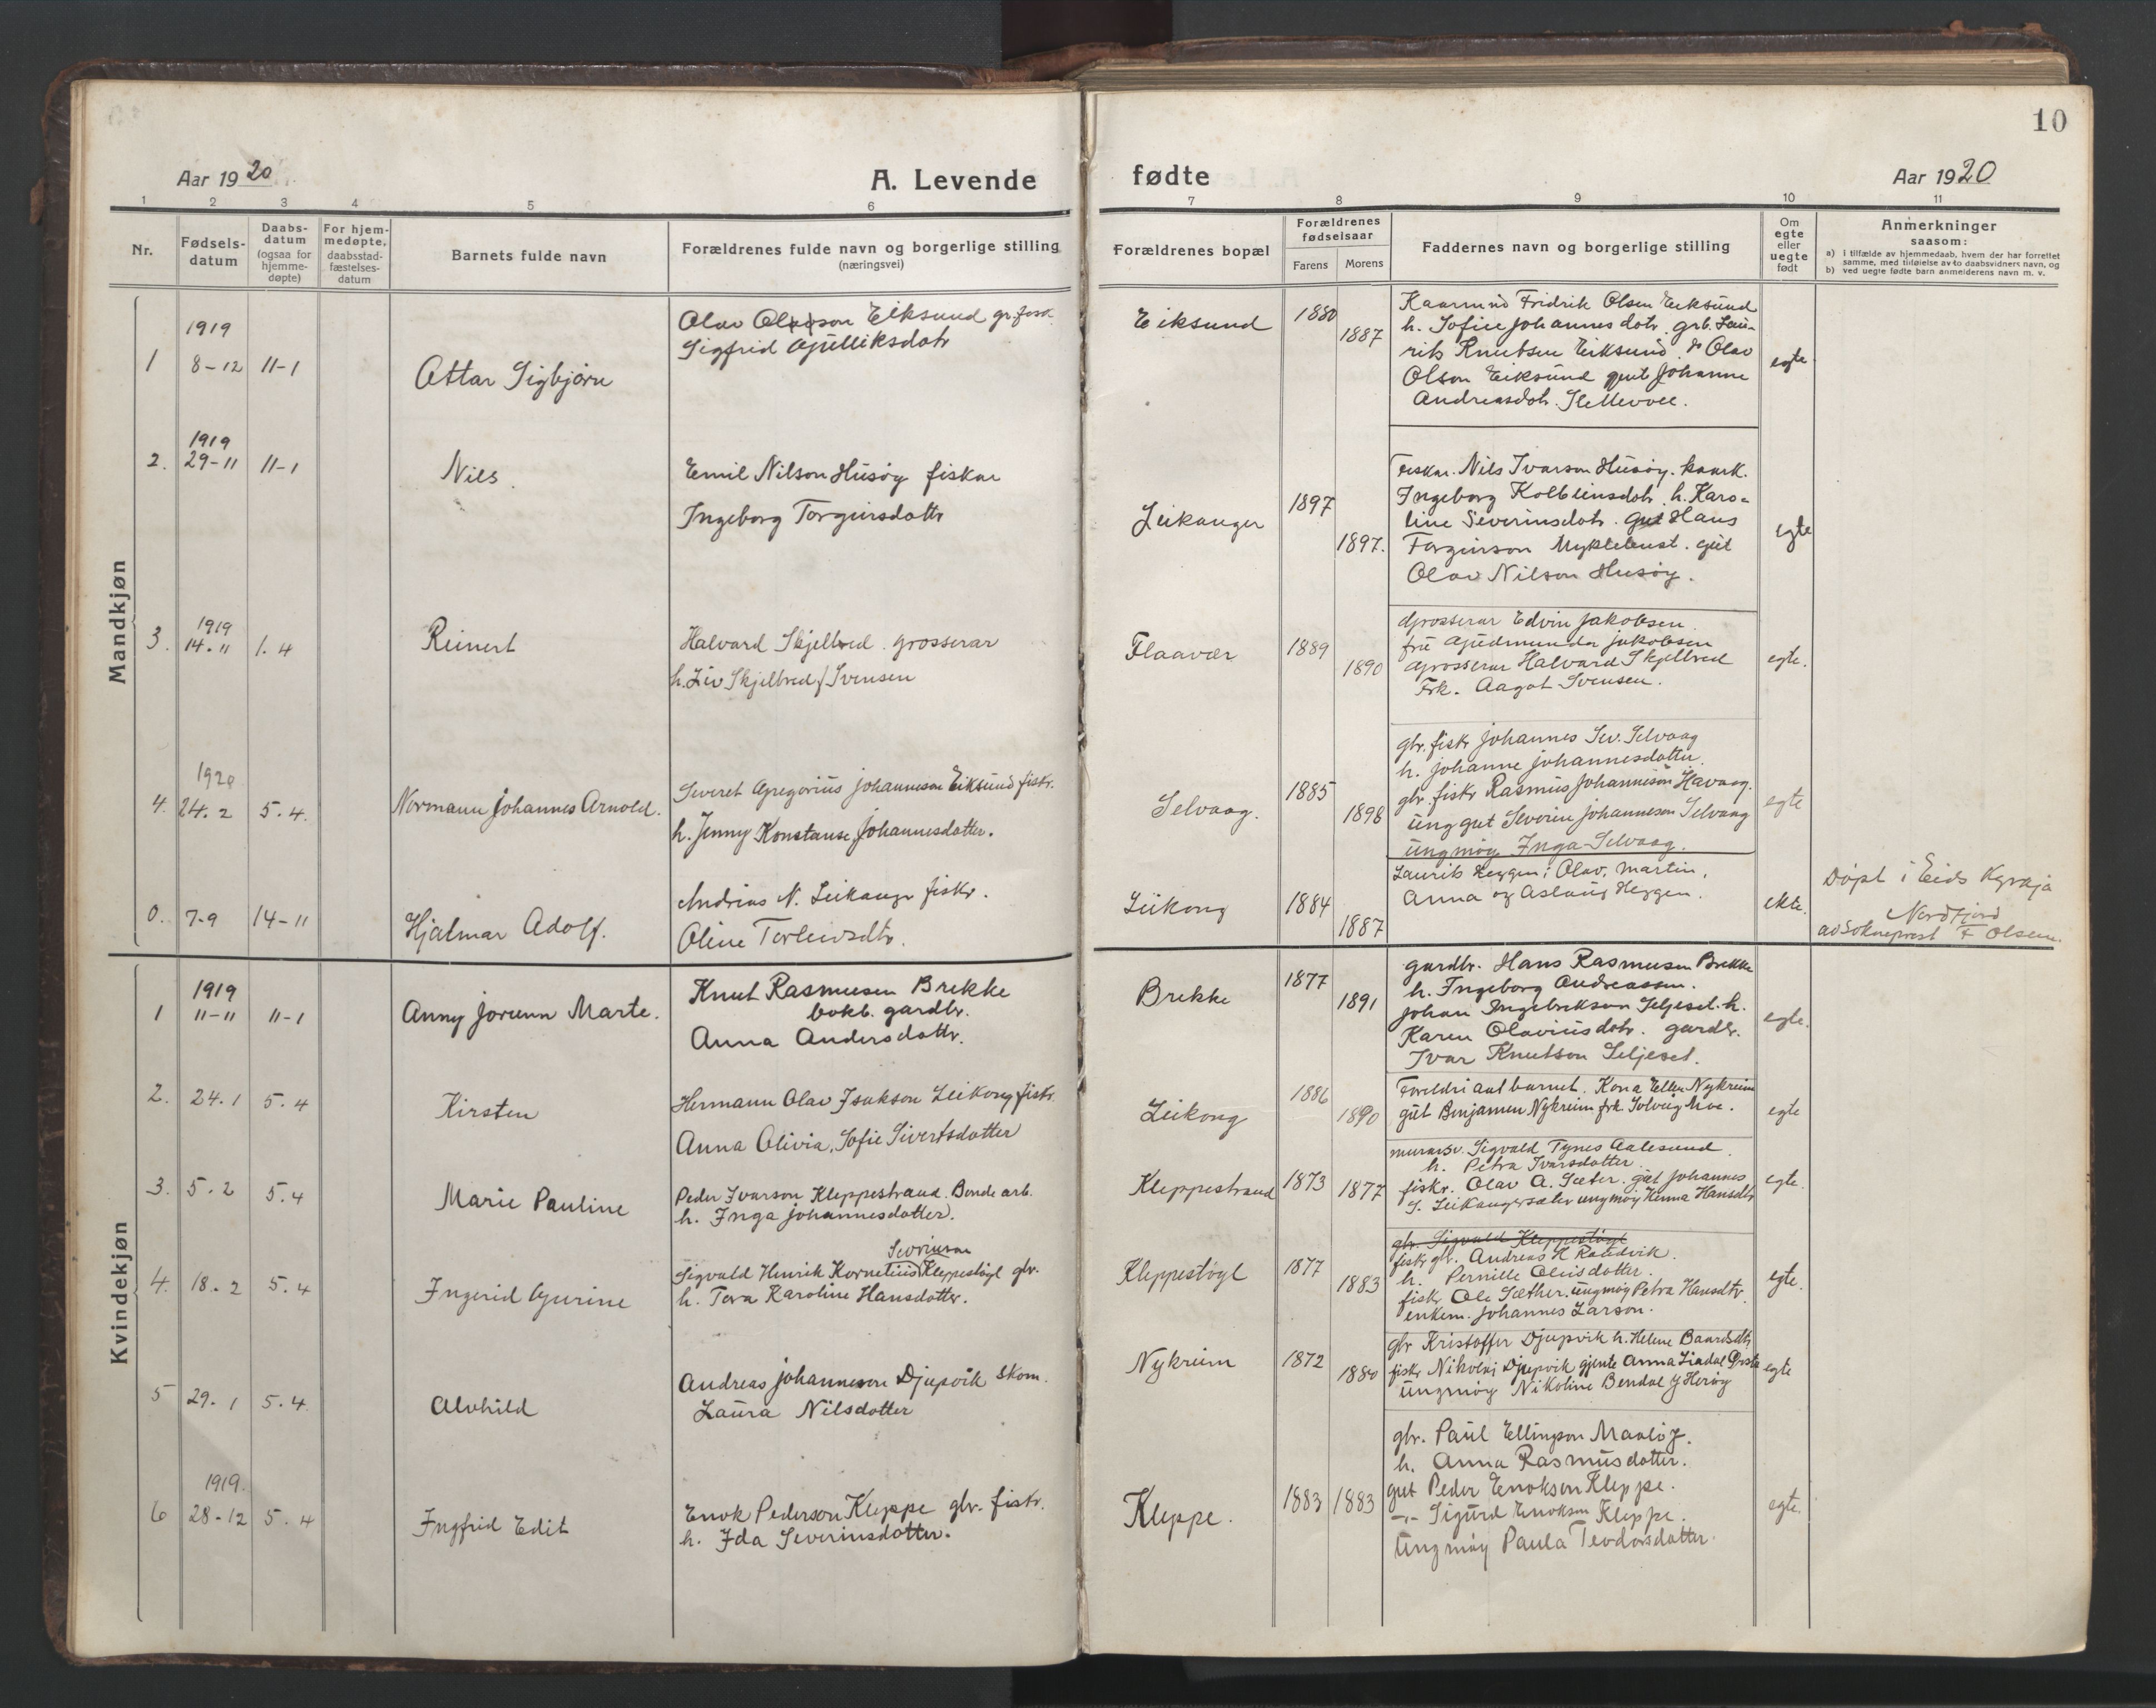 10
Aar 1920
A. Levende
fødte
Aar 1920
1 2 3 4 5 6 7 8 9 10 11
Nr.
Fødsels-
datum
Daabs-
datum
(ogsaa for
hjemme-
døpte)
For hjem-
medøpte,
daabsstad-
fæstelses-
datum
Barnets fulde navn
Forældrenes fulde navn og borgerlige stilling
(næringsvei)
Forældrenes bopæl
Forældrenes
fødselsaar
Farens
Morens
Faddernes navn og borgerlige stilling
Om
egte
eller
uegte
født
Anmerkninger
saasom:
a) I tilfælde av hjemmedaab, hvem der har forrettet
samme, med tilføielse av to daabsvidners navn, og
b) ved uegte fødte barn anmelderens navn m. v.
Mandkjøn
1
1919
8-12 11-1
Ottar Sigbjørn
Olav Olson Eiksund
Sigfrid
Eiksund
1880
1887
Kaarmund Fridrik Olsen Eiksund
h. Sofie Johannesdotr. grb. Lau-
rits Knutsen Eiksund, Olav
Olson Eiksund gut Johanne
Andreasdotr.
egte
2.
1919
29-11 11-1
Nils
Emil Nilson Husøy fiskar
Ingeborg Torgeirsdottr
Leikanger
1897
1897.
Fiskar. Nils Ivarson Husøy. kaark.
Ingeborg Kolbeinsdotr. h. Karo-
line Severinsdotr. gut Hans
Torgeirson Myklebust. gut
Olav Nilson Husøy.
egte
3.
1919
14.11 1.4
Reinert
Halvard Skjelbred. grosserar
h. Liv Skjelbred f. Svensen
Flaavær
1889
1890
Grosserar Edvin Jakobsen.
frú Gudmunda Jakobsen
Grosserar Halvard Skjelbred
Frk. Aagot Svensen.
egte.
4.
1920
24.2 5.4.
Normann Johannes Arnold.
Severet Gregorius Johanneson Eiksund fiskr.
h. Jenny Konstanse Johannesdotter.
Selvaag.
1885
1898
gbr. fiskr Johannes Sev. Selvaag
h. Johanne Johannesdotter.
gbr. fiskr Rasmus Johanneson Havaag.
ung gut Severin Johanneson Selvaag
ungmøy Inga Selvaag.
egte
0. 7-9 14-11
Hjalmar Adolf.
Andrias N. Leikanger fiskr.
Oline Torleivsdtr.
Leikong
1884
1887
Laurits Heggen, Olav, Martin,
Anna og Aslaug Heggen.
ekte.
Døpt i Eids Kyrkja
Nordfjord
av Sokneprest F Olsen.
Kvindekjøn
1
1919
11-11 11-1
Anny Jorunn Marte.
Knut Rasmusen Brekke
bokb. gardbr.
Anna Andersdottr.
Brekke
1877
1891
gardbr. Hans Rasmusen Brekke
h. Ingeborg Andreassen.
Johan Ingebrikson Seljeset. h.
Karen Olaviusdotr. gardbr.
Ivar Knutson Seljeset.
egte.
2. 24.1 5.4
Kirsten
Hermann Olav Isakson Leikong fiskr.
Anna Olivia Sofie Sivertsdotter
Leikong
1886
1890
Foreldri aat barnet. Kona Ellen Nykreim
gut Benjamen Nykreim frk. Solveig Moe.
egte
3. 5.2 5.4
Marie Pauline
Peder Ivarson Kleppestrand. Bondearb.
h. Inga Johannesdotter.
Kleppestrand
1873
1877
murarsv. Sigvald Tynes Aalesund.
h. Petra Ivarsdotter.
fiskr. Olav A. Sæter. gut Johannes
S. Leikangersæter ungmøy Henna Hansdtr
egte.
4. 18.2 5.4
Ingerid Gurine
Severinson
Sigvald Henrik Kornelius Kleppestøyl gbr.
h. Tora Karoline Hansdotter.
Kleppestøyl
1877
1883
gbr. Sigvald Kleppestøyl
fiskr gbr. Andreas K Raudvik.
h. Pernille Olusdotter.
fiskr Ole Sæther. ungmøy Petra Hansdtr.
enkem. Johannes Larson.
egte.
5 29.1 5.4
Alvhild
Andreas Johanneson Djupvik Skom.
Laura Nilsdotter
Nykreim
1872
1880
gbr Kristoffer Djupvik h. Helene Baardsdtr
fiskr Nikolai Djupvik gjente Anna Lindal Ørsta
ungmøy Nikoline Bendal Herøy
egte
6
1919.
28-12 5.4
Ingfrid Edit
Enok Pederson Kleppe gbr. fiskr.
h. Ida Severinsdotter.
Kleppe.
1883
1883
gbr. Paul Ellingson Maaløy.
h. Anna Rasmusdotter.
gut Peder Enokson Kleppe.
-"- Sigurd Enokson Kleppe.
Ungmøy Paula Teodorsdotter.
egte.